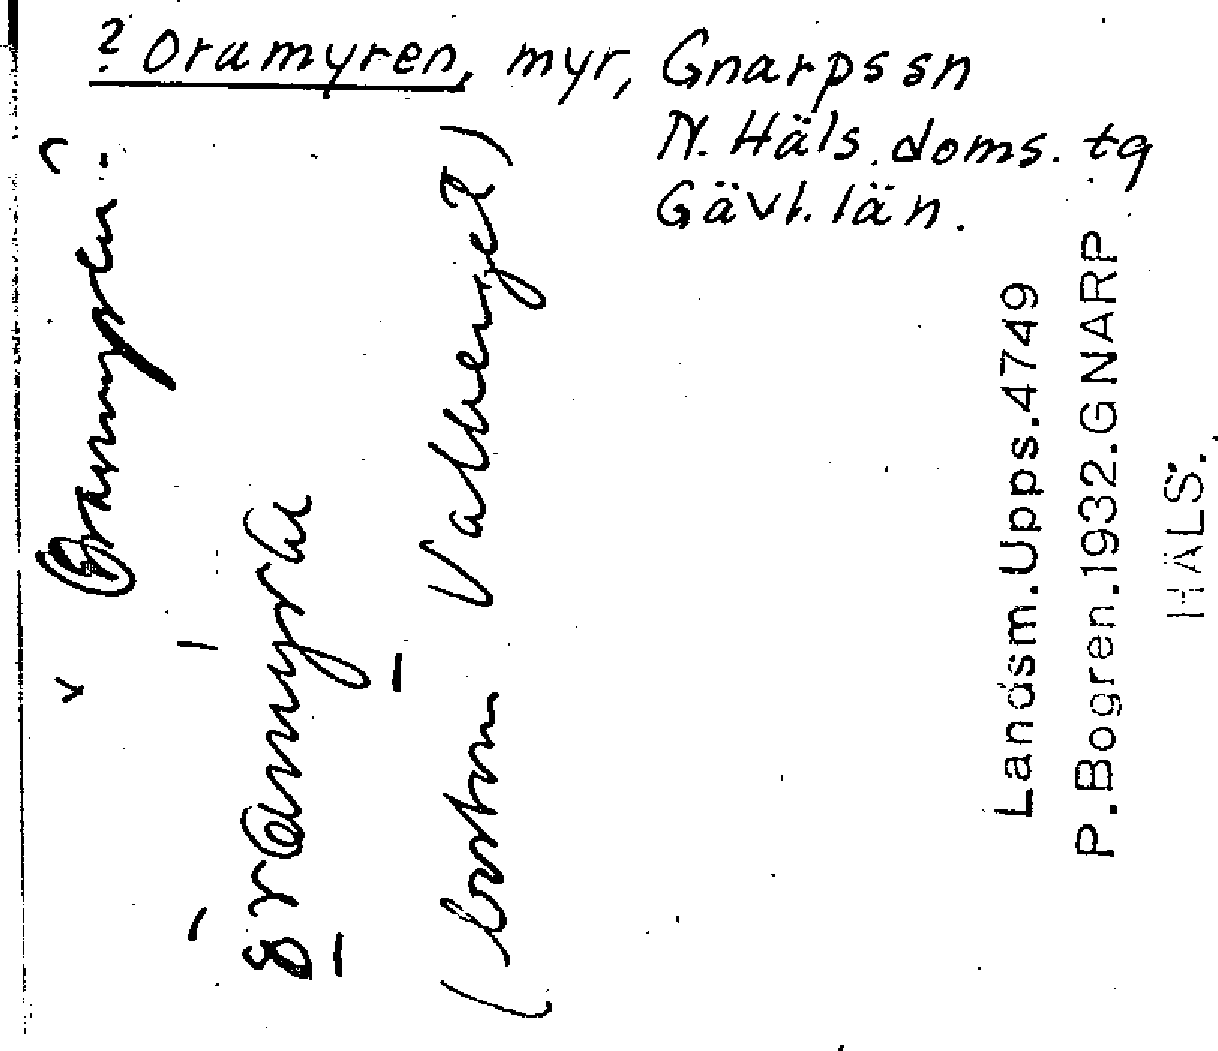 ? Oramyren, myr, Gnarps sn
N. Häls. doms. tg
Gävl. län.
Oramyren?
(bortom Vallberget)
Landsm. Upps. 4749
P. Bogren. 1932. GNARP
HÄLS.